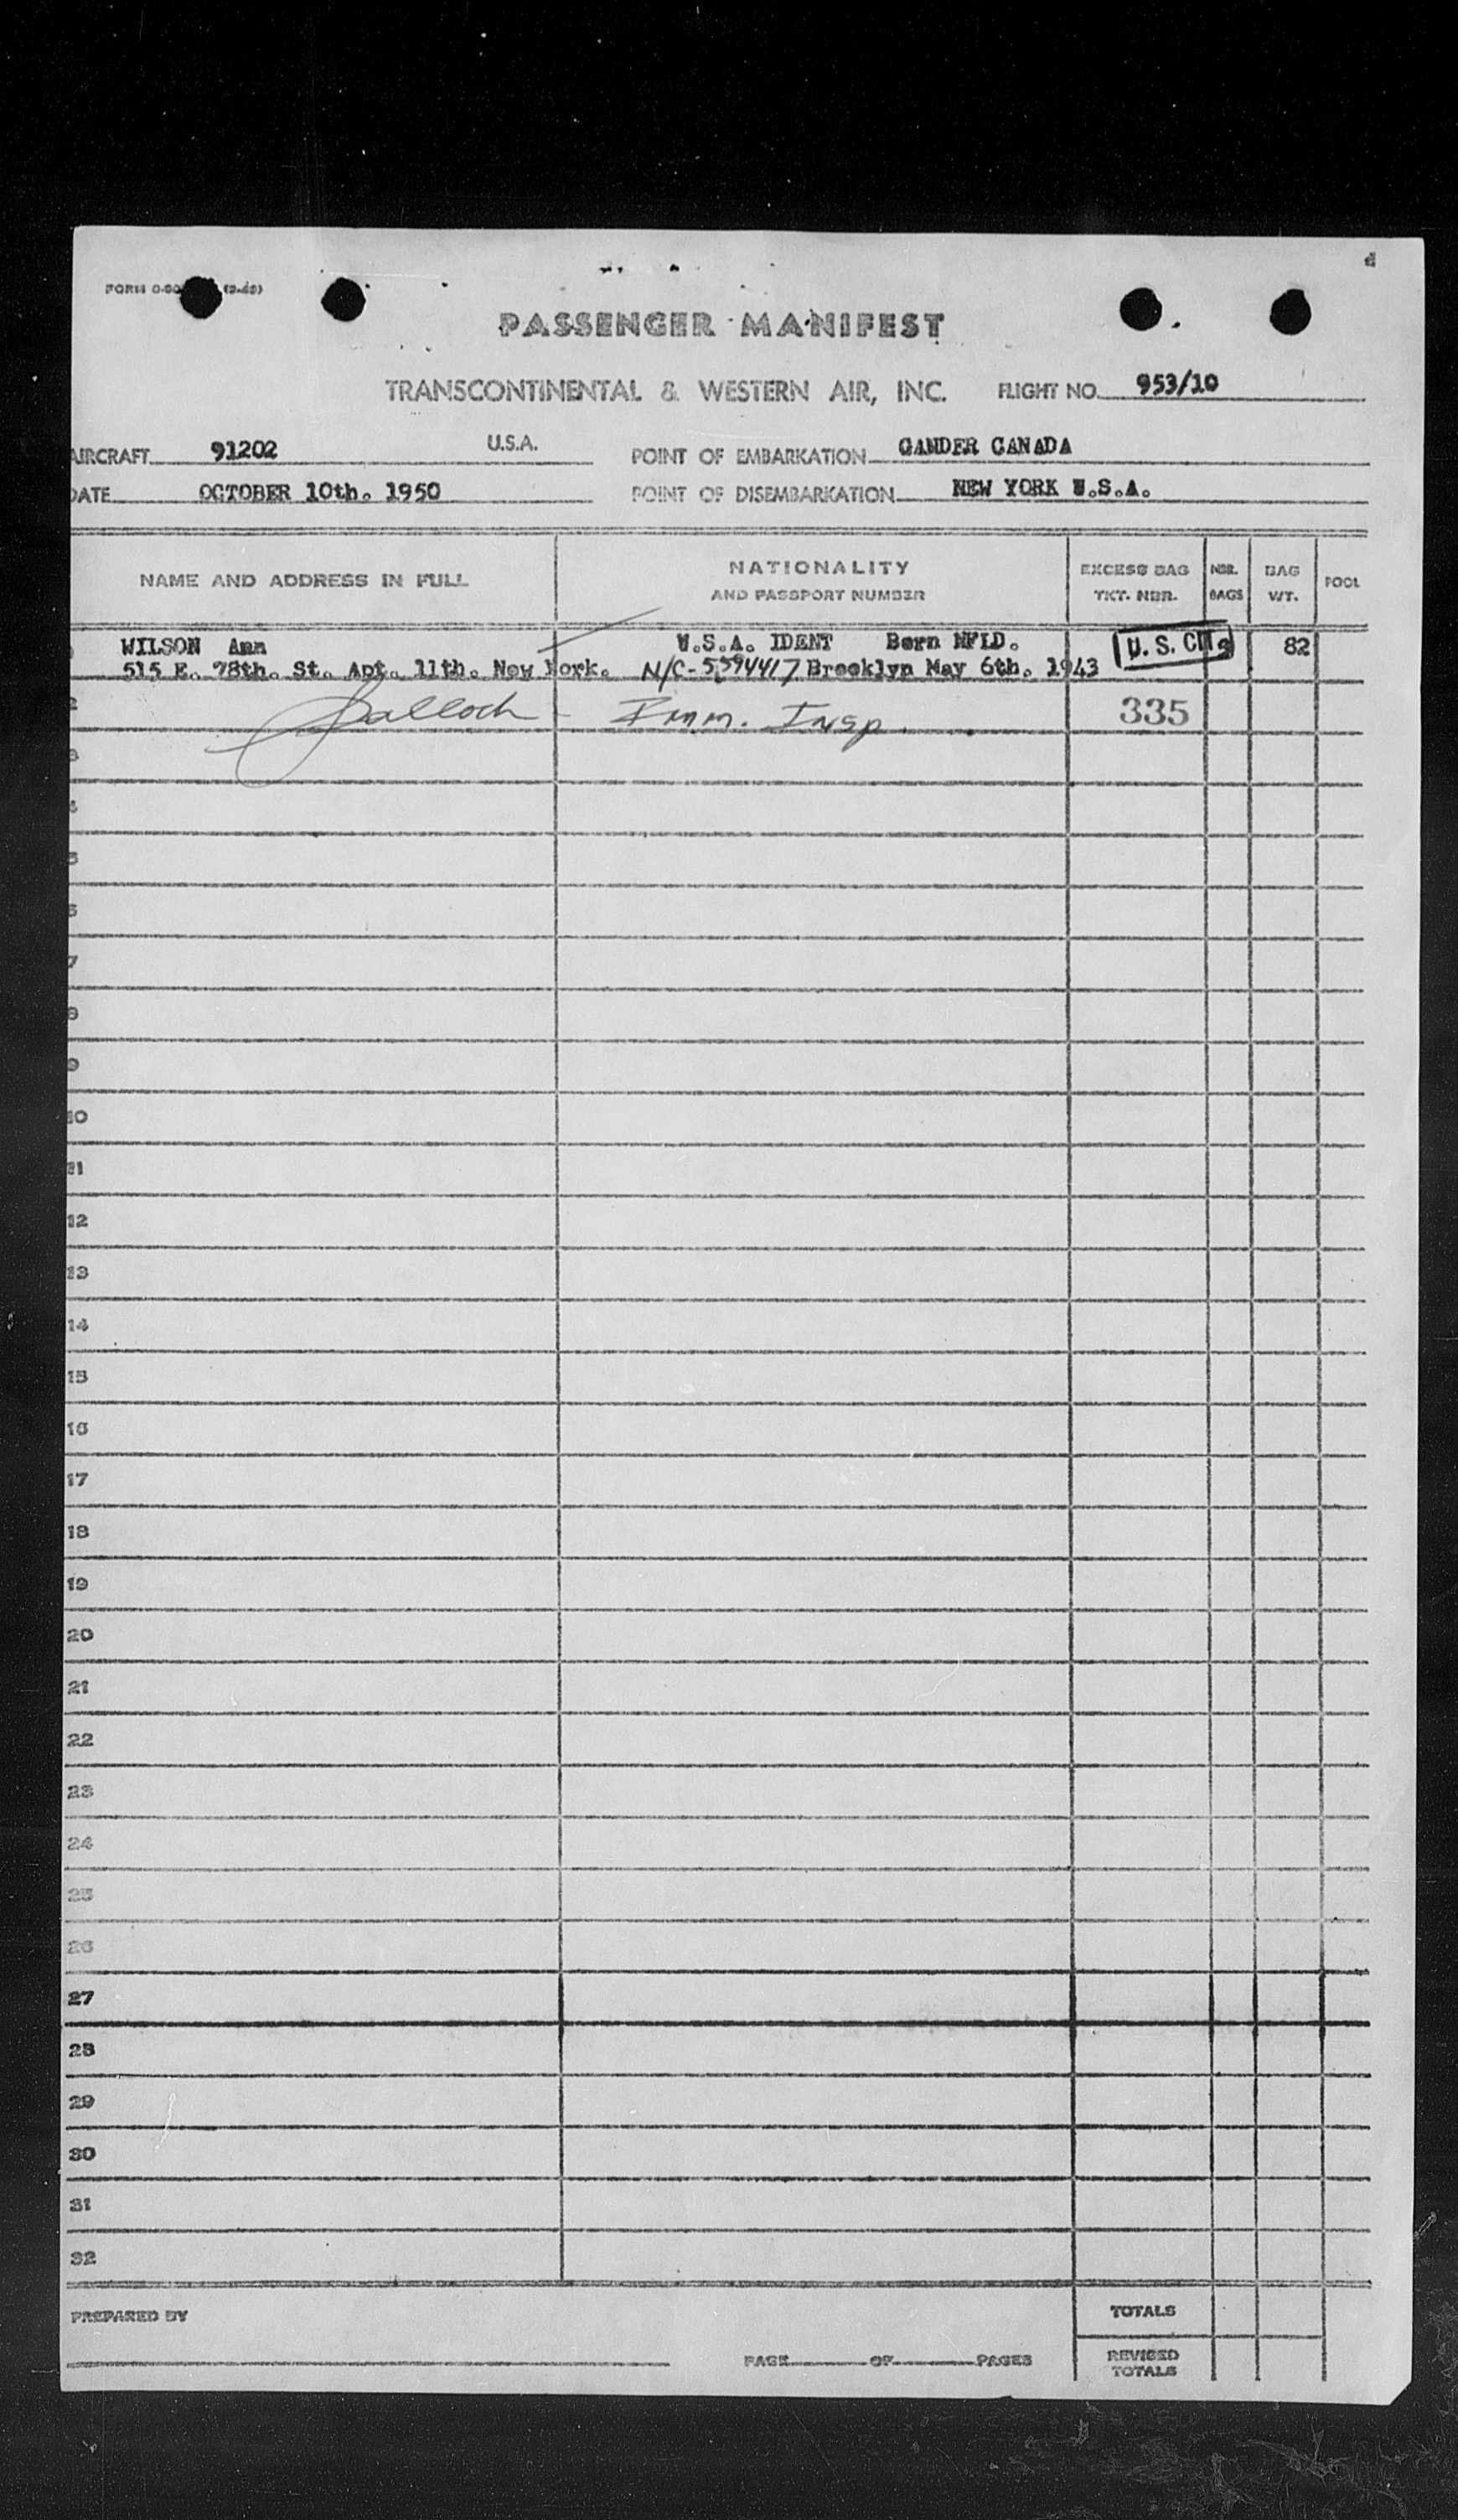 PASSENGER MANIFEST
TRANSCONTINENTAL & WESTERN AIR, INC. FLIGHT NO. 953/10
AIRCRAFT 91202 U.S.A. POINT OF EMBARKATION GANDER CANADA
DATE OCTOBER 10th. 1950 POINT OF DISEMBARKATION NEW YORK U.S.A.
NAME AND ADDRESS IN FULL NATIONALITY AND PASSPORT NUMBER EXCESS BAG TKT. NBR. NBR. BAGS BAG WT. POOL
WILSON Ann U.S.A. IDENT Born NFLD. U.S. CIT 82
515 E. 78th. St. Apt. 11th. New York. N/C-5594417 Brooklyn May 6th. 1943
2 Imm. Insp. 335
3
4
5
6
7
8
9
10
11
12
13
14
15
16
17
18
19
20
21
22
23
24
25
26
27
28
29
30
31
32
PREPARED BY TOTALS
PAGE OF PAGES REVISED TOTALS